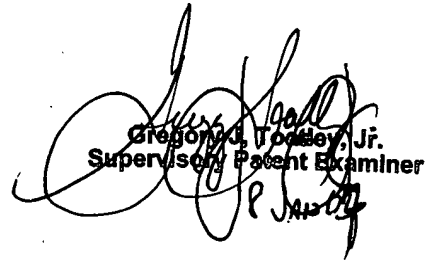 Gregory J. Toatley, Jr.
Supervisory Patent Examiner
8 Jan 04